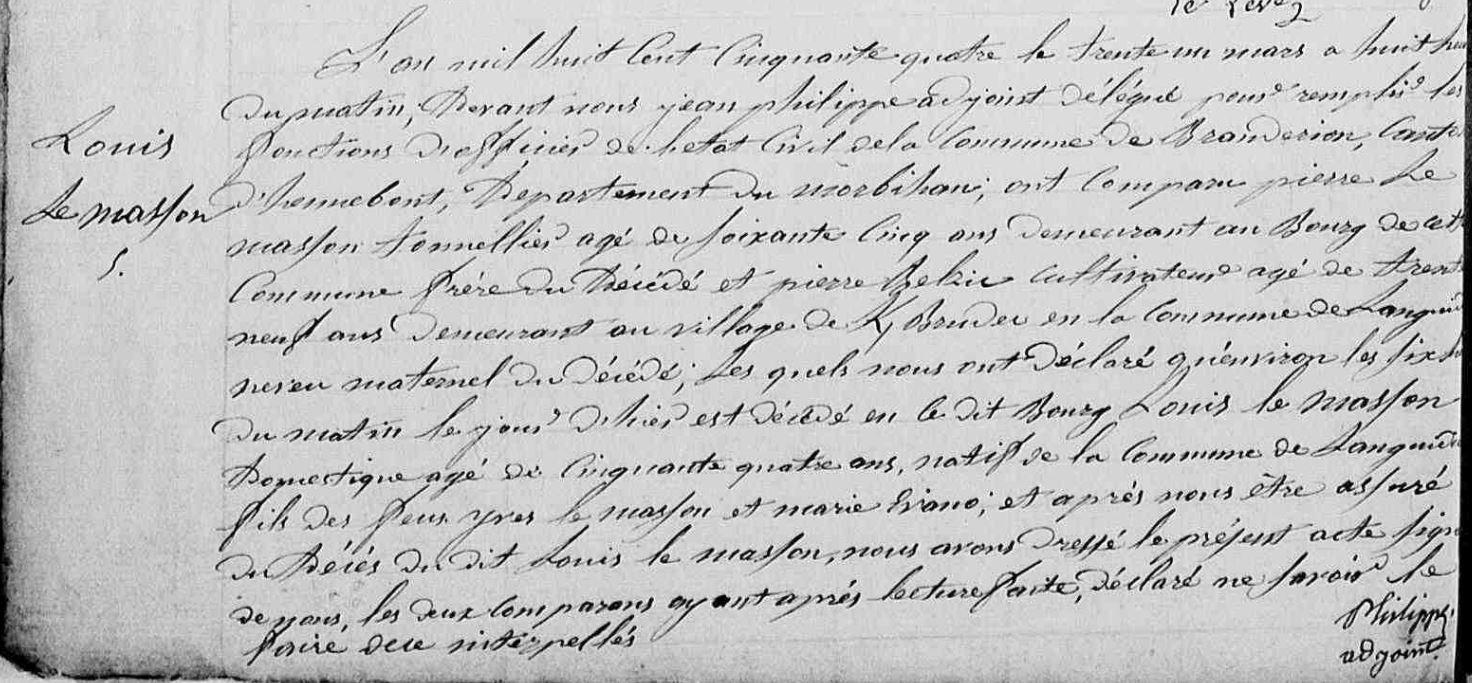 L'an mil huit Cent Cinquante quatre le trente un mars a huit
du matin, Devant nous jean philippe adjoint délégué pour remplir les
fonctions d'officier de l'etat Civil de la Commune de Branderion,
Louis
d'hennebont, Departement du morbihan; ont Comparu pierre Le
Le masson
masson tonnellier agé de soixante Cinq ans demeurant au Bourg de
5.
Commune frère du Décédé et pierre Belzic cultivateur agé de
neuf ans demeurant au village de en la Commune de
neveu maternel du décédé; Les quels nous ont déclaré qu'environ les six
du matin le jour d'hier est décédé en le dit Bourg Louis le masson
Domestique agé de Cinquante quatre ans, natif de la Commune de
fils des feus yves le masson et marie Evano; et aprés nous être assuré
du Décés du dit Louis le masson, nous avons dressé le présent acte
de nous, les deux Comparans ayant aprés lecture faite, déclaré ne savoir le
faire de ce interpellés
Philippe
adjoint